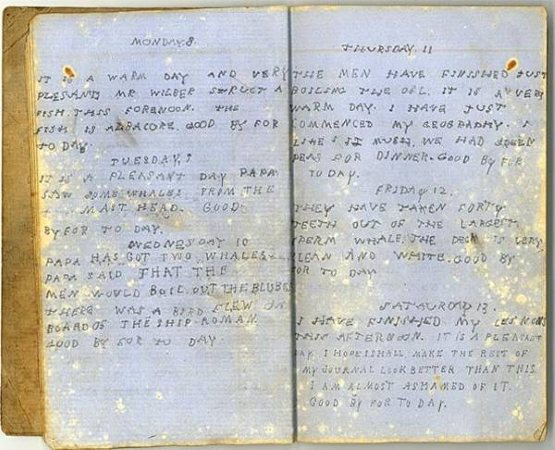 MONDAY 8.
IT IS A WARM DAY AND VERY
PLESANT, MR WILBER STRUCT A
FISH. THIS FORENOON. THE
FISH IS ALBACORE. GOOD BY FOR
TO DAY.
TUESDAY, 9
IT IS A PLEASANT DAY PAPA
SAW SOME WHALES FROM THE
MAST HEAD. GOOD
BY FOR TO DAY.
WEDNESDAY 10
PAPA HAS GOT TWO WHALES
PAPA SAID THAT THE
MEN WOULD BOIL OUT THE BLUBBE
THERE WAS A BIRD FLEW IN
BOARD OF THE SHIP ROMAN
GOOD BY FOR TO DAY.
THURSDAY 11
THE MEN HAVE FINISHED JUST
BOILING THE OIL. IT IS A VERY
WARM DAY. I HAVE JUST
COMMENCED MY GEOGRAPHY. I
LIKE IT MUCH. WE HAD GREEN
PEAS FOR DINNER. GOOD BY FOR
TO DAY.
FRIDAY 12.
THEY HAVE TAKEN FORTY
TEETH OUT OF THE LARGEST
SPERM WHALE. THE DECK IS VERY
CLEAN AND WHITE. GOOD BY
FOR TO DAY
SATAURDAY 13.
I HAVE FINISHED MY LESSONS
THIS AFTERNOON. IT IS A PLEASANT
DAY. I HOPE I SHALL MAKE THE REST OF
MY JOURNAL LOOK BETTER THAN THIS.
I AM ALMOST ASHAMED OF IT.
GOOD BY FOR TO DAY.